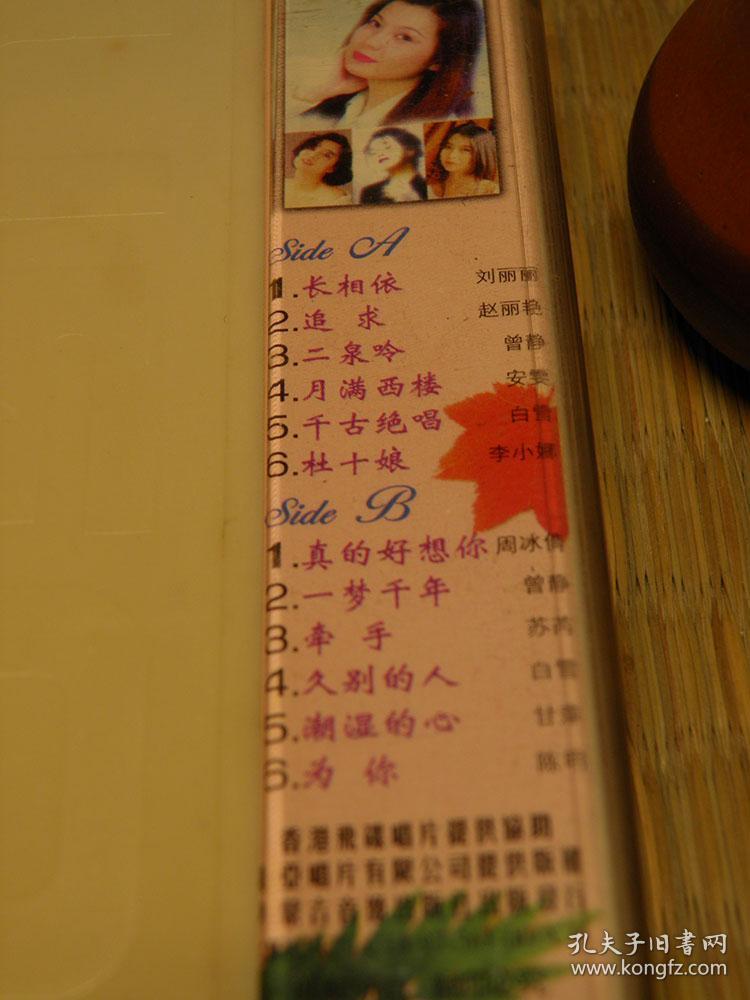 Side A
1.长相依 刘丽丽
2.追求 赵丽艳
3.二泉吟 曾静
4.月满西楼 安雯
5.千古绝唱 白雪
6.杜十娘 李小娜
Side B
1.真的好想你 周冰倩
2.一梦千年 曾静
3.牵手 苏芮
4.久别的人 白雪
5.潮湿的心 甘
6.为你 陈明
香港飛碟唱片提供協助
亞唱片有限公司提供版權
孔夫子旧書网
www.kongfz.com